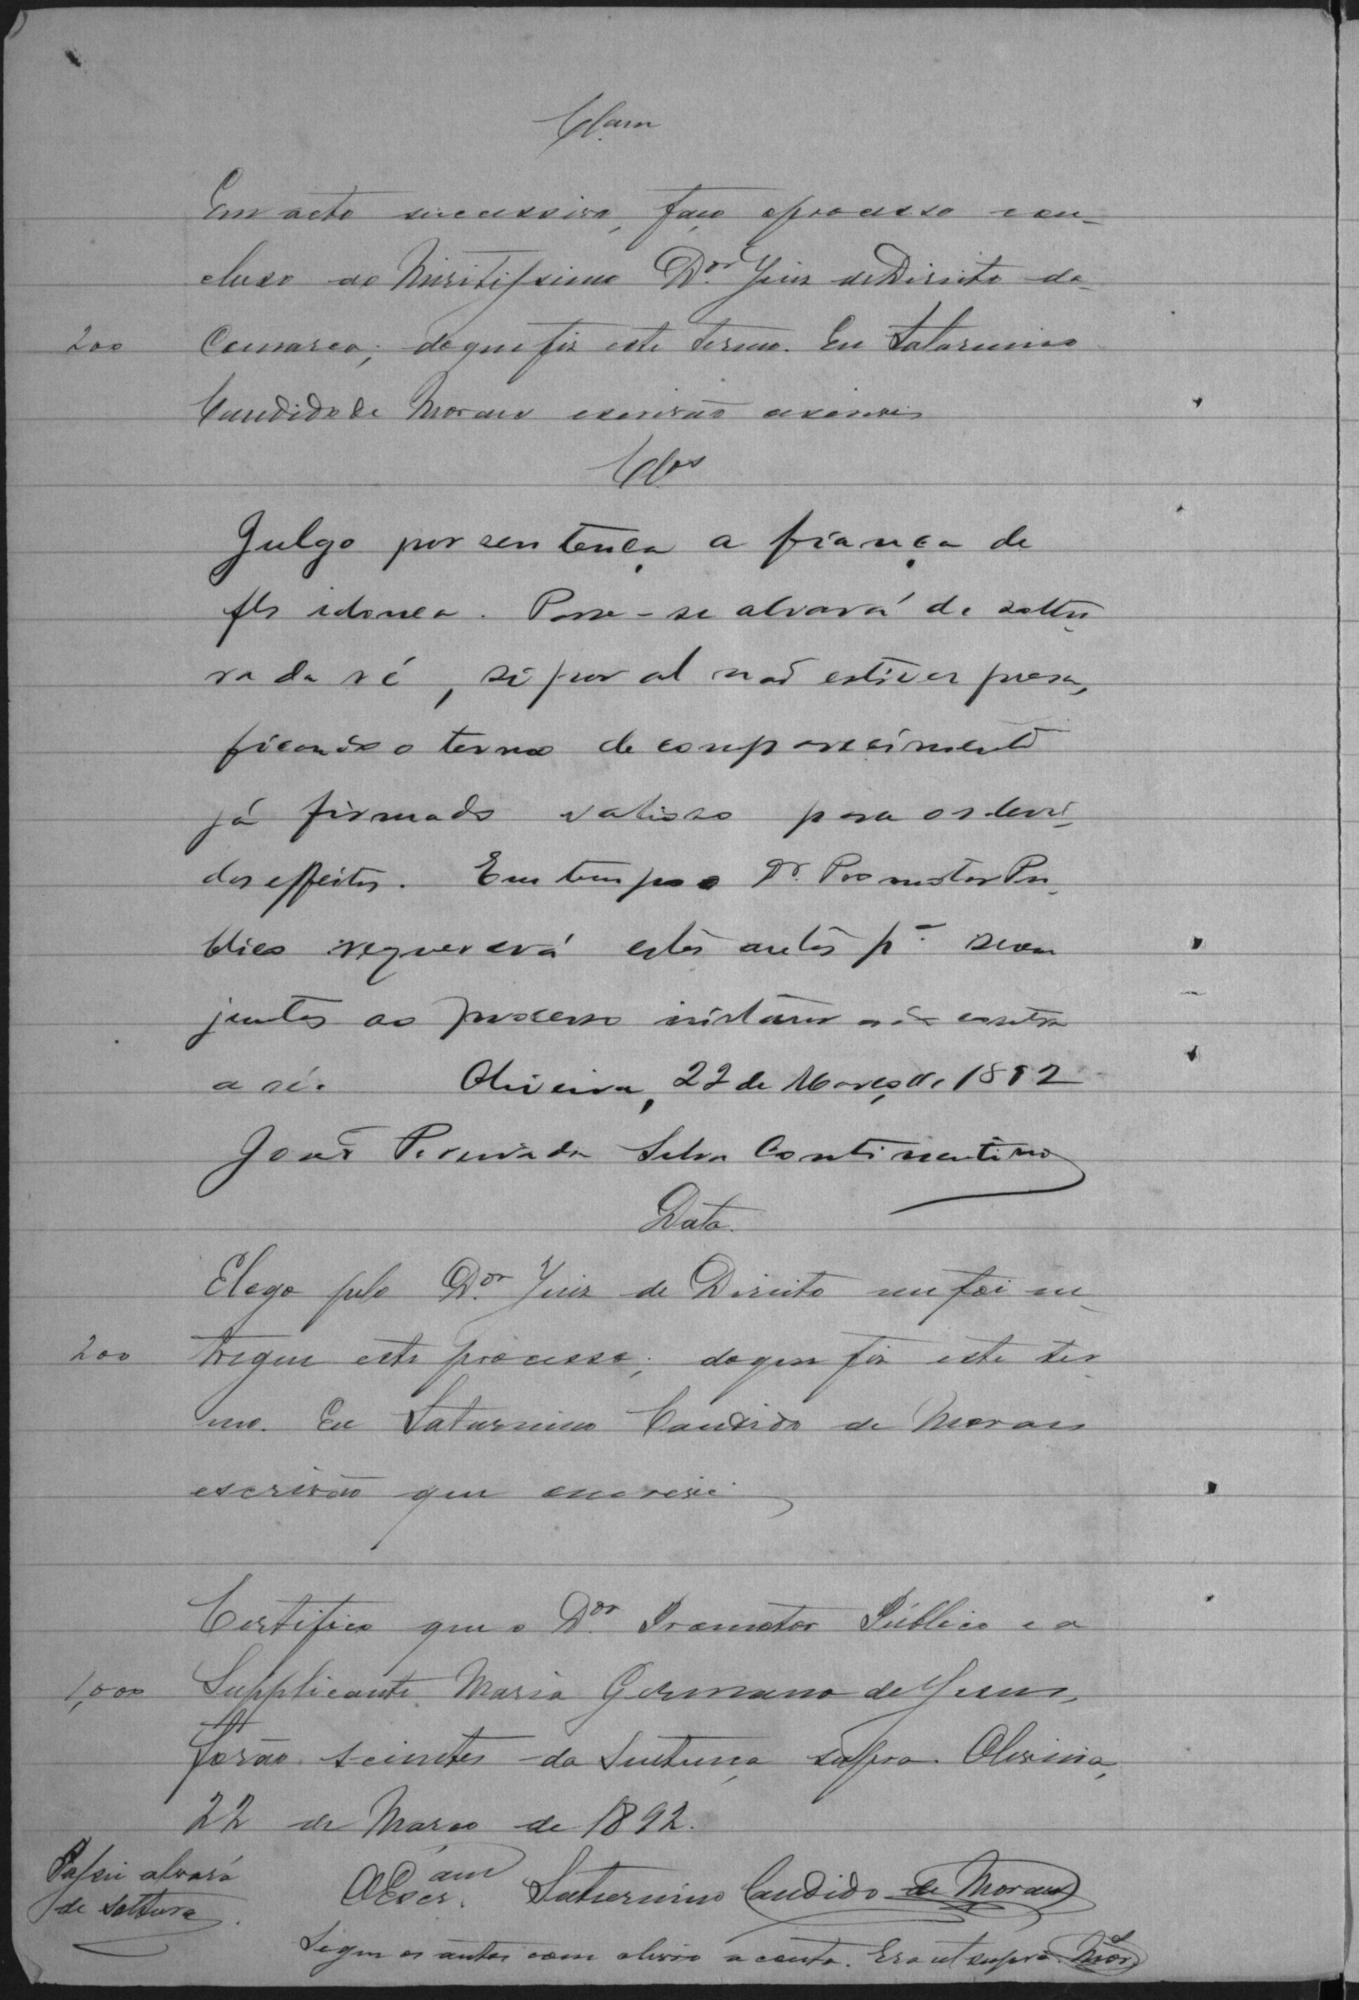 Cl.am
Em acto successivo, faço o processo con-
cluso ao Miritissimo D.or Juiz de Direito da
200 Comarca; do que fiz este termo. Eu Saturnino
Candido de Moraes escrivão escrevi
Cl.os
Julgo por sentença a fiança de
fls idonea. Passe-se alvará de soltu-
ra da ré, si por al não estiver presa,
ficando o termo de comparecimento
já firmado valioso para os devi-
dos effeitos. Em tempo o Dr. Promotor Pu-
blico requererá estes autos p.a serem
juntos ao processo instaurado contra
a ré. Oliveira, 22 de Março de 1892
João Pereira da Silva Continentino
Data.
E logo pelo D.or Juiz de Direito me foi en-
200 tregue este processo; do que fiz este ter-
mo. Eu Saturnino Candido de Moraes
escrivão que escrevi
Certifico que o D.or Promotor Público e a
1,000 Supplicante, Maria Germana de Jesus,
forão scientes da Sentença supra. Oliveira,
22 de Março de 1892.
Passei alvará
de soltura.
O Escr.am Saturnino Candido de Moraes
Segue os autos com a conta. Era ut supra. Mor.s